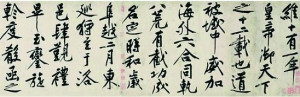 維十有一年
皇帝御天下
之十二載也道
被域中威加
海外六合同軌
八荒有截功成
名遂時和歲
阜越二月東
巡狩至于洛
邑肆覲禮
畢玉鑾旋
軫度崤函之